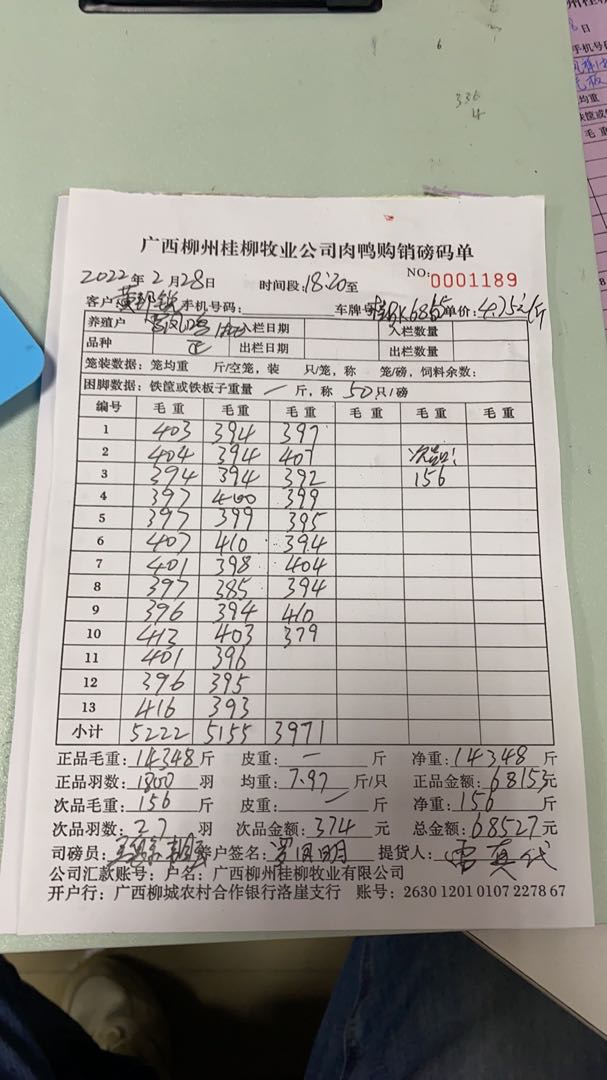 广西柳州桂柳牧业公司肉鸭购销磅码单
2022年2月28日 时间段:18:20至 NO:0001189
客户: 手机号码: 车牌号 单价:4.75元/斤
养殖户 入栏日期 入栏数量
品种 正 出栏日期 出栏数量
笼装数据: 笼均重 斤/空笼, 装 只/笼, 称 笼/磅, 饲料余数:
困脚数据: 铁筐或铁板子重量 一 斤, 称 50只/磅
编号 毛重 毛重 毛重 毛重 毛重 毛重
1 403 394 397
2 404 394 407 次品:
3 394 394 392 156
4 397 400 399
5 397 399 395
6 407 410 394
7 401 398 404
8 397 385 394
9 396 394 410
10 413 403 379
11 401 396
12 396 395
13 416 393
小计 5222 5155 3971
正品毛重:14348斤 皮重:一斤 净重:14348斤
正品羽数:1800羽 均重:7.97斤/只 正品金额:68153元
次品毛重:156斤 皮重:一斤 净重:156斤
次品羽数:27羽 次品金额:374元 总金额:68527元
司磅员: 客户签名: 提货人:
公司汇款账号: 户名: 广西柳州桂柳牧业有限公司
开户行: 广西柳城农村合作银行洛崖支行 账号: 2630 1201 0107 2278 67
336